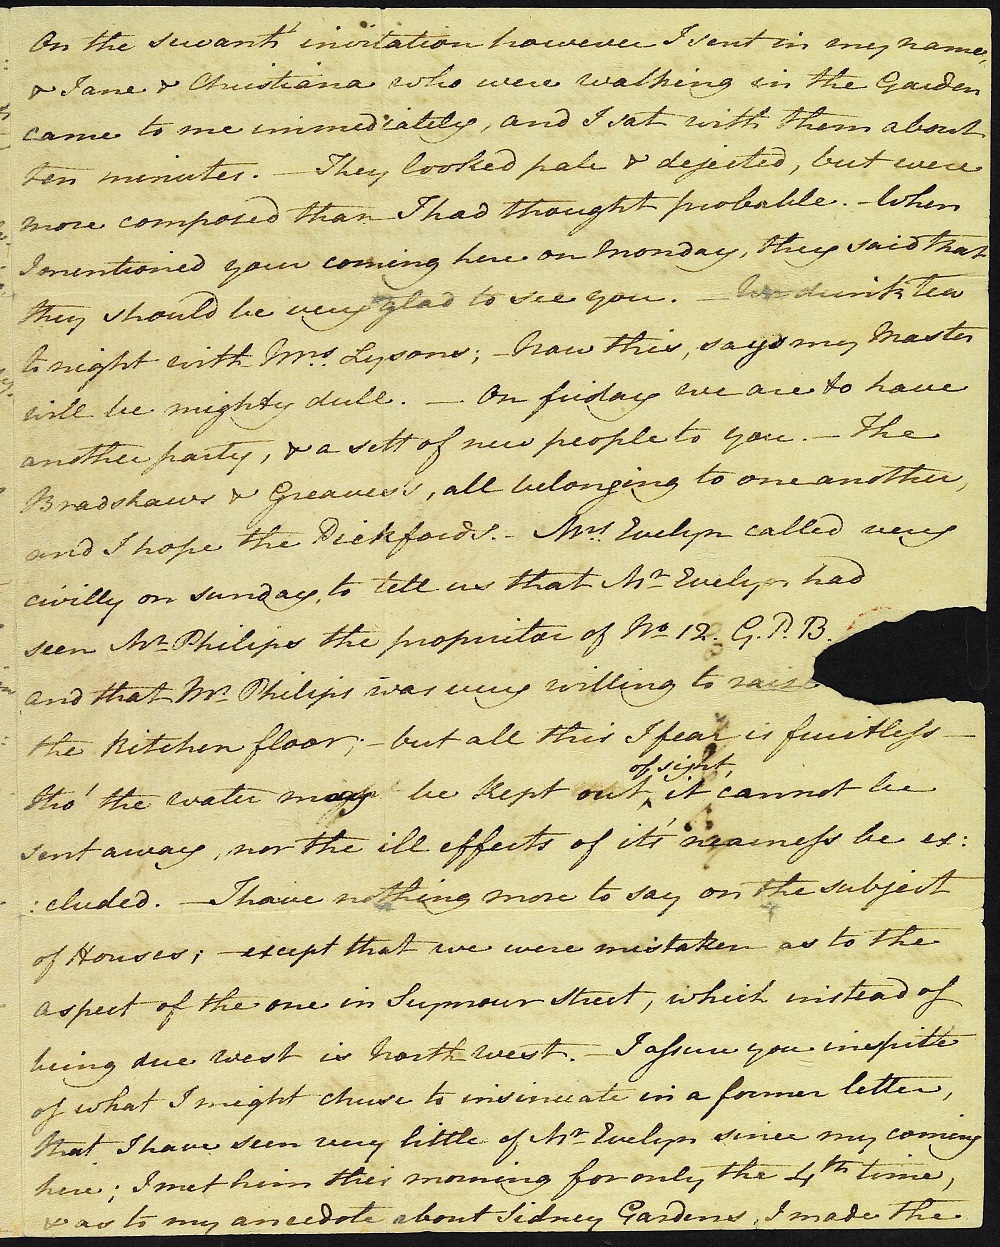 On the servant's invitation however I sent in my name,
& Jane & Christiana who were walking in the Garden
came to me immediately, and I sat with them about
ten minutes. — They looked pale & dejected, but were
more composed than I had thought probable. — When
I mentioned your coming here on Monday, they said that
they should be very glad to see you. — We drink tea
tonight with Mrs. Lysons; — Now this, says my Master
will be mighty dull. — On friday we are to have
another party, & a sett of new people to you. — The
Bradshaws & Greaves's, all belonging to one another,
and I hope the Pickfords. — Mrs. Evelyn called very
civilly on sunday, to tell us that Mr. Evelyn had
seen Mr. Philips the proprietor of No. 12. G. P. B.
and that Mr. Philips was very willing to raise
the kitchen floor; — but all this I fear is fruitless —
tho' the water may be kept out of sight, it cannot be
sent away, nor the ill effects of it's nearness be ex:
:cluded. — I have nothing more to say on the subject
of Houses; — except that we were mistaken as to the
aspect of the one in Seymour Street, which instead of
being due west is North west. — I assure you inspite
of what I might chuse to insinuate in a former letter,
that I have seen very little of Mr. Evelyn since my coming
here; I met him this morning for only the 4th time,
& as to my anecdote about Sidney Gardens, I made the